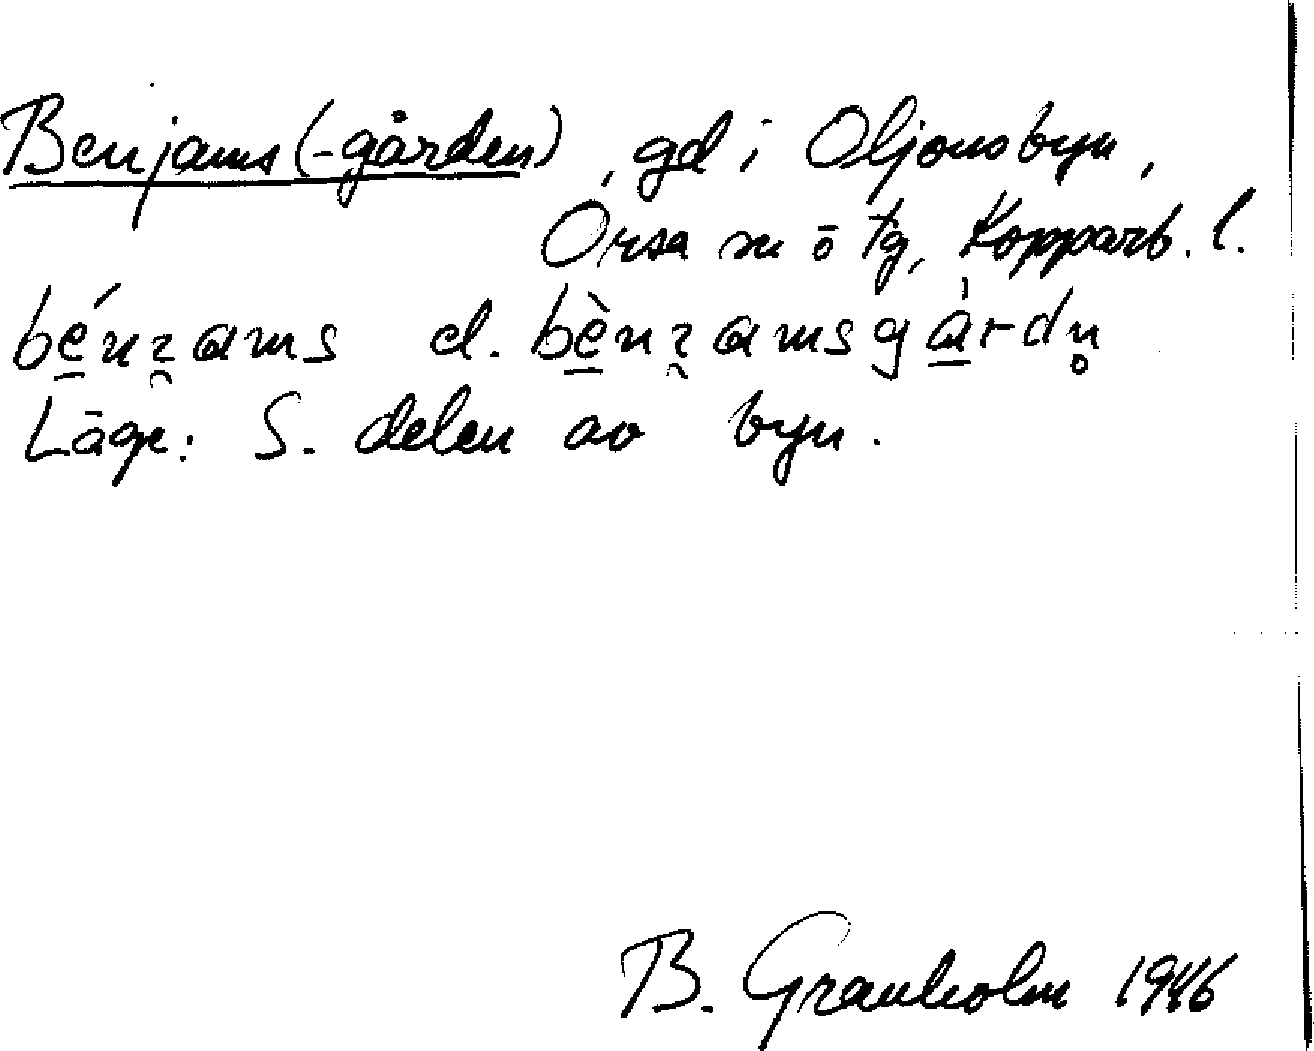 Benjams (-gården), gd i Oljonsbyn,
Orsa sn o tg, Kopparb. l.
bénz̯ams el. bènz̯amsgárdn̥
Läge: S. delen av byn.
B. Granholm 1946